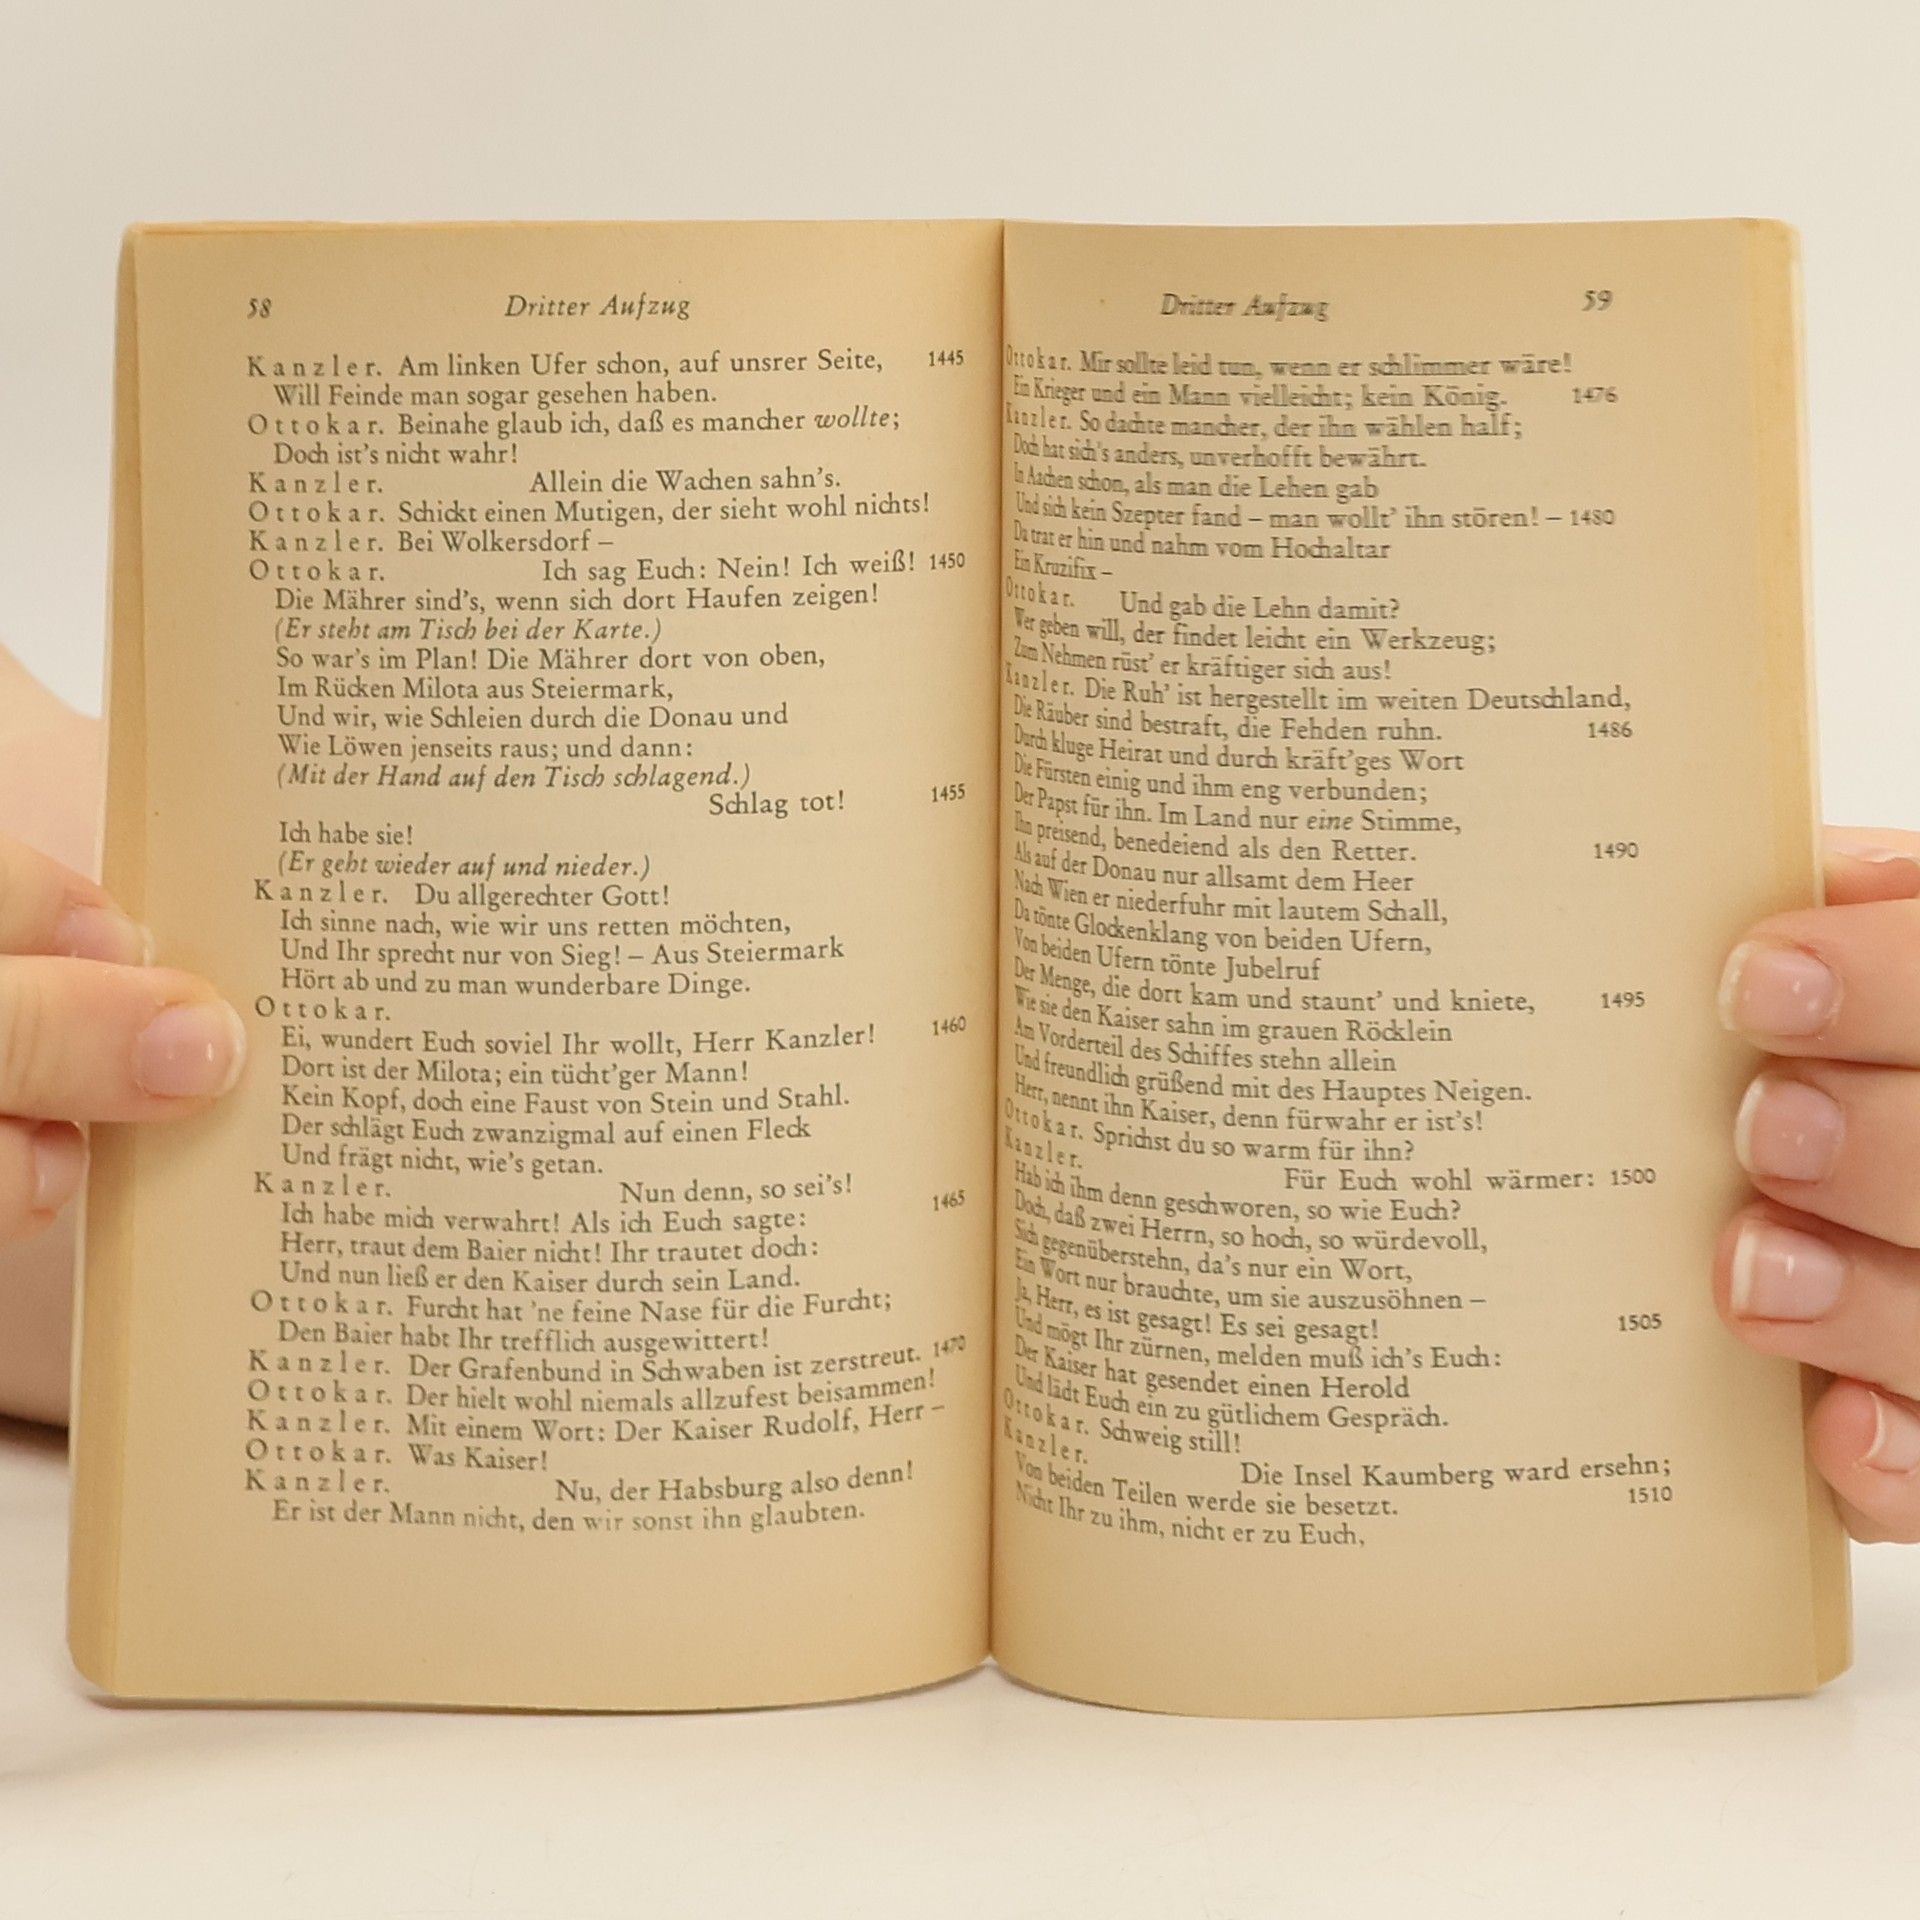 58 Dritter Aufzug
Kanzler. Am linken Ufer schon, auf unsrer Seite, 1445
Will Feinde man sogar gesehen haben.
Ottokar. Beinahe glaub ich, daß es mancher wollte;
Doch ist's nicht wahr!
Kanzler. Allein die Wachen sahn's.
Ottokar. Schickt einen Mutigen, der sieht wohl nichts!
Kanzler. Bei Wolkersdorf –
Ottokar. Ich sag Euch: Nein! Ich weiß! 1450
Die Mährer sind's, wenn sich dort Haufen zeigen!
(Er steht am Tisch bei der Karte.)
So war's im Plan! Die Mährer dort von oben,
Im Rücken Milota aus Steiermark,
Und wir, wie Schleien durch die Donau und
Wie Löwen jenseits raus; und dann:
(Mit der Hand auf den Tisch schlagend.)
Schlag tot! 1455
Ich habe sie!
(Er geht wieder auf und nieder.)
Kanzler. Du allgerechter Gott!
Ich sinne nach, wie wir uns retten möchten,
Und Ihr sprecht nur von Sieg! – Aus Steiermark
Hört ab und zu man wunderbare Dinge.
Ottokar.
Ei, wundert Euch soviel Ihr wollt, Herr Kanzler! 1460
Dort ist der Milota; ein tücht'ger Mann!
Kein Kopf, doch eine Faust von Stein und Stahl.
Der schlägt Euch zwanzigmal auf einen Fleck
Und frägt nicht, wie's getan.
Kanzler. Nun denn, so sei's!
Ich habe mich verwahrt! Als ich Euch sagte: 1465
Herr, traut dem Baier nicht! Ihr trautet doch:
Und nun ließ er den Kaiser durch sein Land.
Ottokar. Furcht hat 'ne feine Nase für die Furcht;
Den Baier habt Ihr trefflich ausgewittert!
Kanzler. Der Grafenbund in Schwaben ist zerstreut. 1470
Ottokar. Der hielt wohl niemals allzufest beisammen!
Kanzler. Mit einem Wort: Der Kaiser Rudolf, Herr –
Ottokar. Was Kaiser!
Kanzler. Nu, der Habsburg also denn!
Er ist der Mann nicht, den wir sonst ihn glaubten.
Dritter Aufzug 59
Ottokar. Mir sollte leid tun, wenn er schlimmer wäre!
Ein Krieger und ein Mann vielleicht; kein König. 1476
Kanzler. So dachte mancher, der ihn wählen half;
Doch hat sich's anders, unverhofft bewährt.
In Aachen schon, als man die Lehen gab
Und sich kein Szepter fand – man wollt' ihn stören! – 1480
Da trat er hin und nahm vom Hochaltar
Ein Kruzifix –
Ottokar. Und gab die Lehn damit?
Wer geben will, der findet leicht ein Werkzeug;
Zum Nehmen rüst' er kräftiger sich aus!
Kanzler. Die Ruh' ist hergestellt im weiten Deutschland,
Die Räuber sind bestraft, die Fehden ruhn. 1486
Durch kluge Heirat und durch kräft'ges Wort
Die Fürsten einig und ihm eng verbunden;
Der Papst für ihn. Im Land nur eine Stimme,
Ihn preisend, benedeiend als den Retter. 1490
Als auf der Donau nur allsamt dem Heer
Nach Wien er niederfuhr mit lautem Schall,
Da tönte Glockenklang von beiden Ufern,
Von beiden Ufern tönte Jubelruf
Der Menge, die dort kam und staunt' und kniete, 1495
Wie sie den Kaiser sahn im grauen Röcklein
Am Vorderteil des Schiffes stehn allein
Und freundlich grüßend mit des Hauptes Neigen.
Herr, nennt ihn Kaiser, denn fürwahr er ist's!
Ottokar. Sprichst du so warm für ihn?
Kanzler. Für Euch wohl wärmer: 1500
Hab ich ihm denn geschworen, so wie Euch?
Doch, daß zwei Herrn, so hoch, so würdevoll,
Sich gegenüberstehn, da's nur ein Wort,
Ein Wort nur brauchte, um sie auszusöhnen –
Ja, Herr, es ist gesagt! Es sei gesagt! 1505
Und mögt Ihr zürnen, melden muß ich's Euch:
Der Kaiser hat gesendet einen Herold
Und lädt Euch ein zu gütlichem Gespräch.
Ottokar. Schweig still!
Kanzler. Die Insel Kaumberg ward ersehn;
Von beiden Teilen werde sie besetzt. 1510
Nicht Ihr zu ihm, nicht er zu Euch,